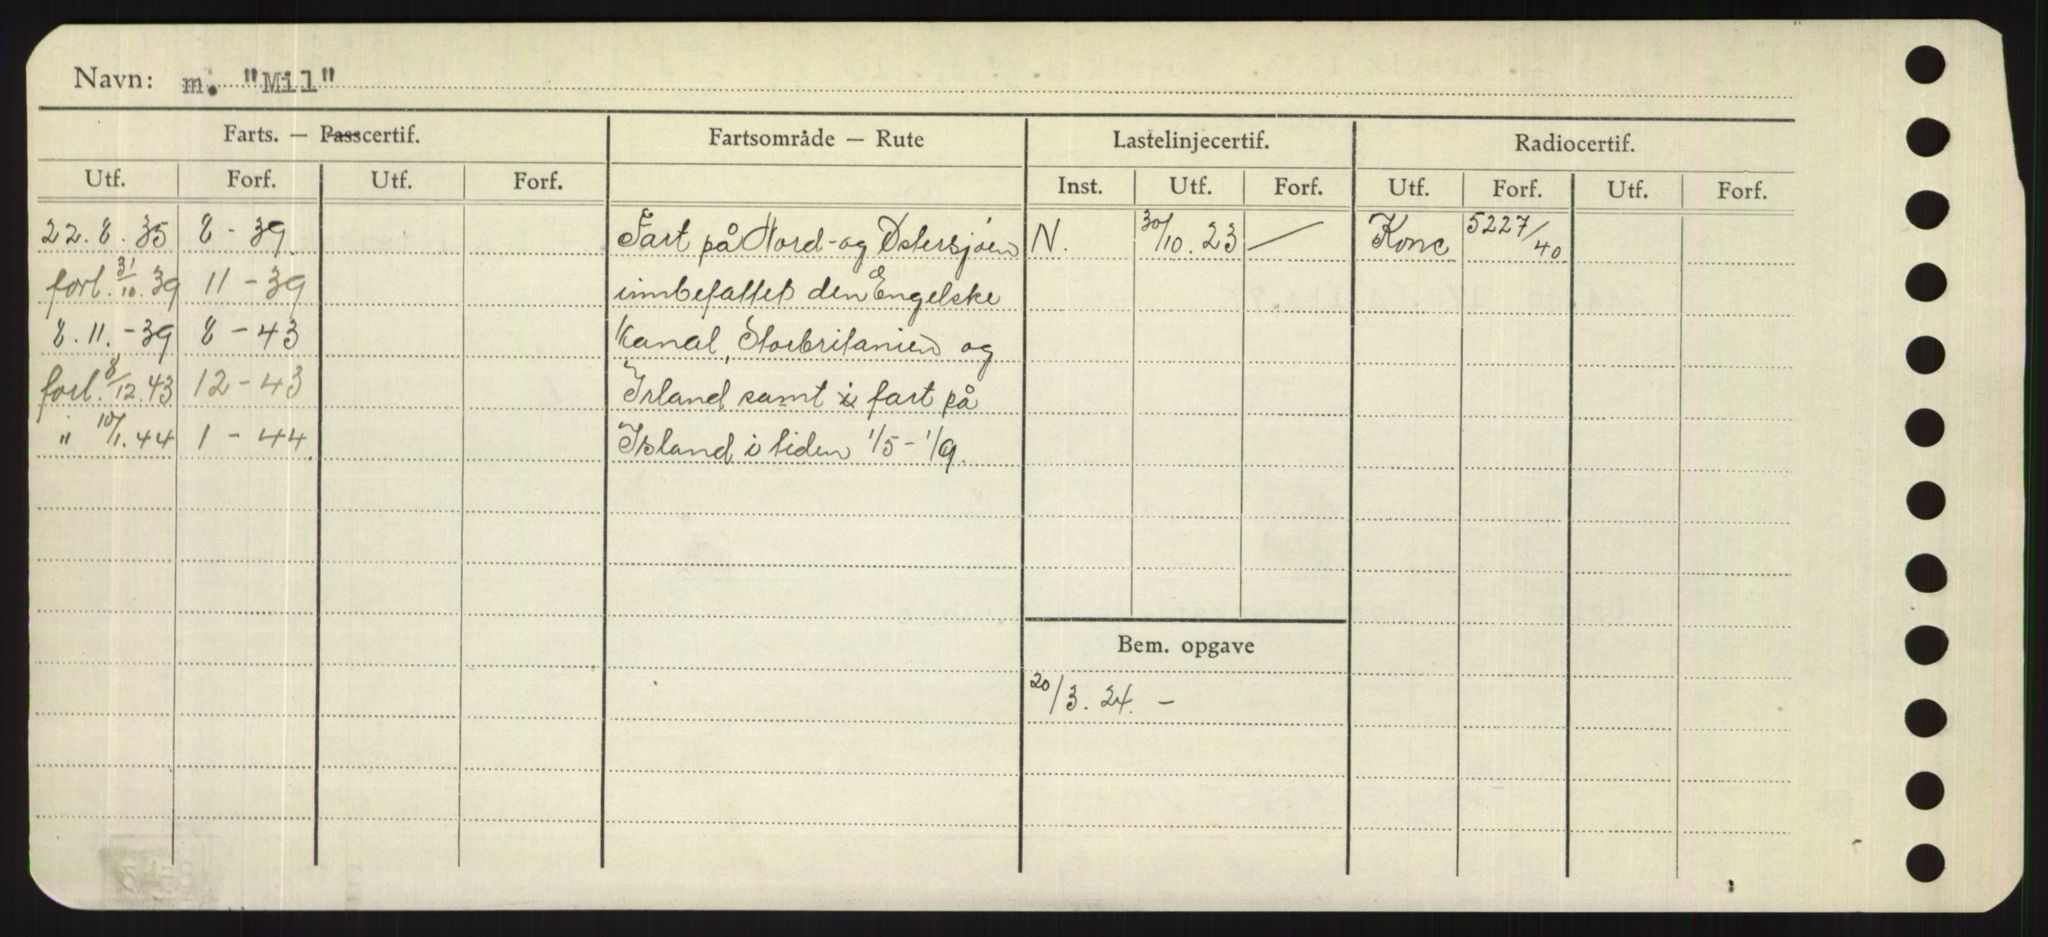 Navn: m. "Mil"
Farts. — Passcertif. Fartsområde — Rute Lastelinjecertif. Radiocertif.
Utf. Forf. Utf. Forf. Inst. Utf. Forf. Utf. Forf. Utf. Forf.
22.8.35 8-39. Fart på Nord- og Østersjøen N. 30/10.23 — Konc 5227/40
forl. 31/10.39 11-39 innbefattet den Engelske
8.11.-39 8-43 Kanal, Storbritanien og
forl. 8/12.43 12-43 Irland samt i fart på
" 10/1.44 1-44. Island i tiden 1/5-1/9.
Bem. opgave
20/3.24. -